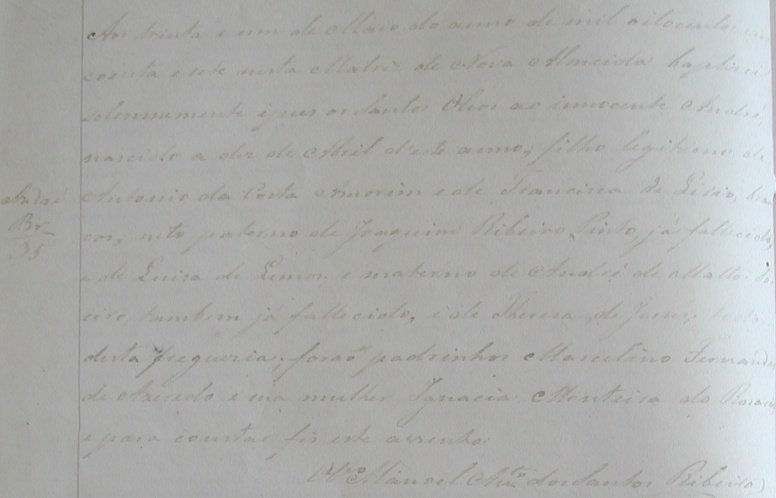 Aos trinta e um de Maio do anno de mil oitocentos
coenta e sete nesta Matriz de Nova Almeida baptisei
solemnemente e puz os Santos Oleos ao innocente André,
nascido a dez de Abril d'este anno, filho legitimo de
André
Br_
35
Antonio da Costa Amorim e de Francisca de
cos, neto paterno de Joaquim Ribeiro Pinto, já fallecido,
e de Luisa de Lemos e materno de André de Mattos
tambem já fallecido, e de Theresa de Jesus,
desta Freguezia; foraõ padrinhos Marcelino Fernandes
de Azeredo e sua mulher Ignacia Monteira do
e para constar fiz este assento.
Manoel dos Santos Ribeiro